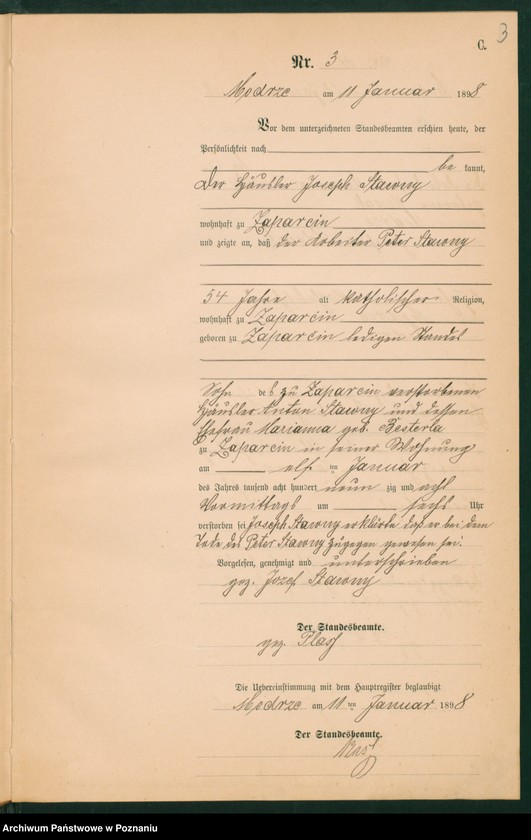 3
C.
Nr. 3
Modrze am 11 Januar 1898
Vor dem unterzeichneten Standesbeamten erschien heute, der
Persönlichkeit nach
be kannt,
der Häusler Joseph Stawny
wohnhaft zu Zaparcin
und zeigte an, daß der Arbeiter Peter Stawny
54 Jahre alt katholischer Religion,
wohnhaft zu Zaparcin
geboren zu Zaparcin ledigen Standes
Sohn des zu Zaparcin verstorbenen
Häusler Anton Stawny und dessen
Ehefrau Marianna geb.
zu Zaparcin in seiner Wohnung
am elf ten Januar
des Jahres tausend acht hundert neun zig und acht
Vormittags um sechs Uhr
verstorben sei Joseph Stawny erklärte daß er bei dem
Tode des Peter Stawny zugegen gewesen sei.
Vorgelesen, genehmigt und unterschrieben
gez. Jozef Stawny
Der Standesbeamte.
gez.
Die Uebereinstimmung mit dem Hauptregister beglaubigt
Modrze am 11 ten Januar 1898
Der Standesbeamte.
Archiwum Państwowe w Poznaniu